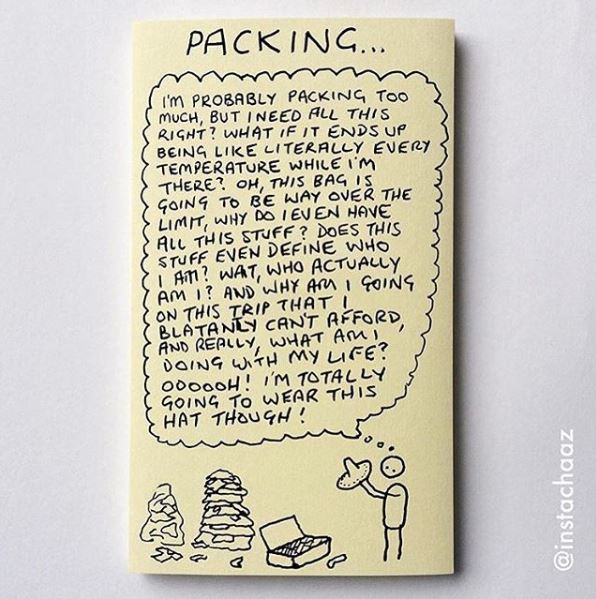 PACKING...
I'M PROBABLY PACKING TOO
MUCH, BUT I NEED ALL THIS
RIGHT? WHAT IF IT ENDS UP
BEING LIKE LITERALLY EVERY
TEMPERATURE WHILE I'M
THERE? OH, THIS BAG IS
GOING TO BE WAY OVER THE
LIMIT, WHY DO I EVEN HAVE
ALL THIS STUFF? DOES THIS
STUFF EVEN DEFINE WHO
I AM? WAIT, WHO ACTUALLY
AM I? AND WHY AM I GOING
ON THIS TRIP THAT I
BLATANTLY CAN'T AFFORD,
AND REALLY, WHAT AM I
DOING WITH MY LIFE?
OOOOOH! I'M TOTALLY
GOING TO WEAR THIS
HAT THOUGH!
@instachaaz